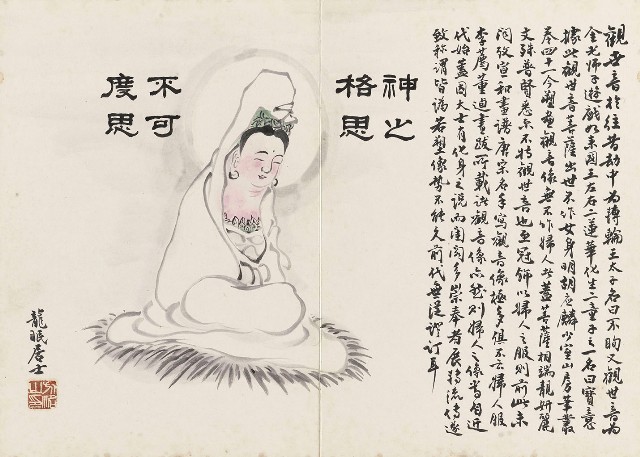 觀世音於往昔劫中為轉輪王太子名曰不眴又觀世音為
金光師子遊戲如來國王左右二蓮華化生二童子之一名曰寶意
據此觀世音菩薩出世不作女身明胡應麟少室山房筆叢
卷四十一今塑畫觀音像無不作婦人此蓋菩薩相端靚妍麗
文殊普賢悉尔不特觀世音也至冠飾以婦人之服則前此未
聞攷宣和畫譜唐宋名手寫觀音像極多俱不云婦人服
李廌董逌畫跋所載諸觀音像亦然則婦人之像當自近
代始蓋因大士有化身之說而閨閣多崇奉者展轉流傳遂
致稱謂皆訛若塑像勢不能久前代無從證訂耳
神之
格思
不可
度思
龍眠居士